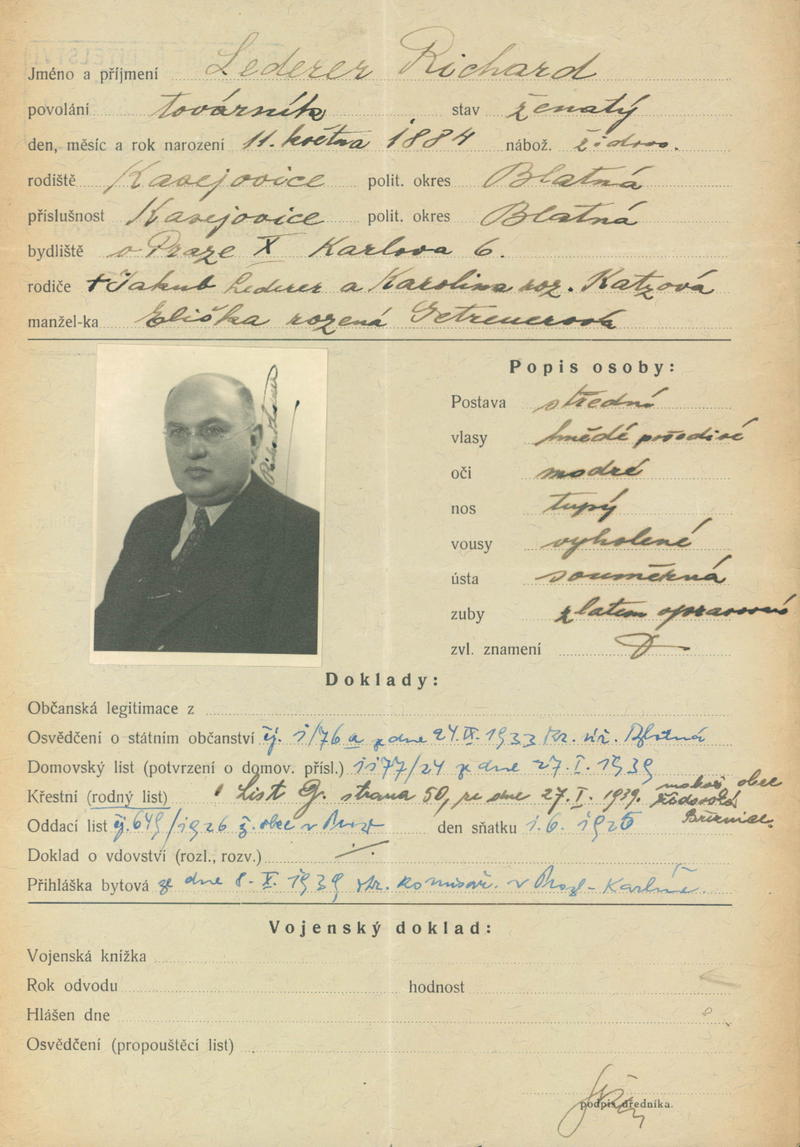 Jméno a příjmení Lederer Richard
povolání továrník stav ženatý
den, měsíc a rok narození 11. května 1884 nábož. židov.
rodiště Kasejovice polit. okres Blatná
příslušnost Kasejovice polit. okres Blatná
bydliště v Praze X Karlova 6.
rodiče + Jakub Lederer a Karolina roz. Katzová
manžel-ka Eliška rozená
Popis osoby:
Postava střední
vlasy hnědé prošedivé
oči modré
nos tupý
vousy vyholené
ústa souměrná
zuby zlatem
zvl. znamení
Doklady:
Občanská legitimace z
Osvědčení o státním občanství čj. 1/76 a z dne 24.IX.1933 Blatná
Domovský list (potvrzení o domov. přísl.) 1177/24 z dne 27.I.1939
Křestní (rodný list) List G. strana 50, ze dne 27.I.1939. židovské
Oddací list čj. 649/1926 ž. obec v den sňatku 1.6.1926
Doklad o vdovství (rozl., rozv.)
Přihláška bytová ze dne 8.X.1939 komisař. v - Karlíně.
Vojenský doklad:
Vojenská knížka
Rok odvodu hodnost
Hlášen dne
Osvědčení (propouštěcí list)
podpis úředníka.